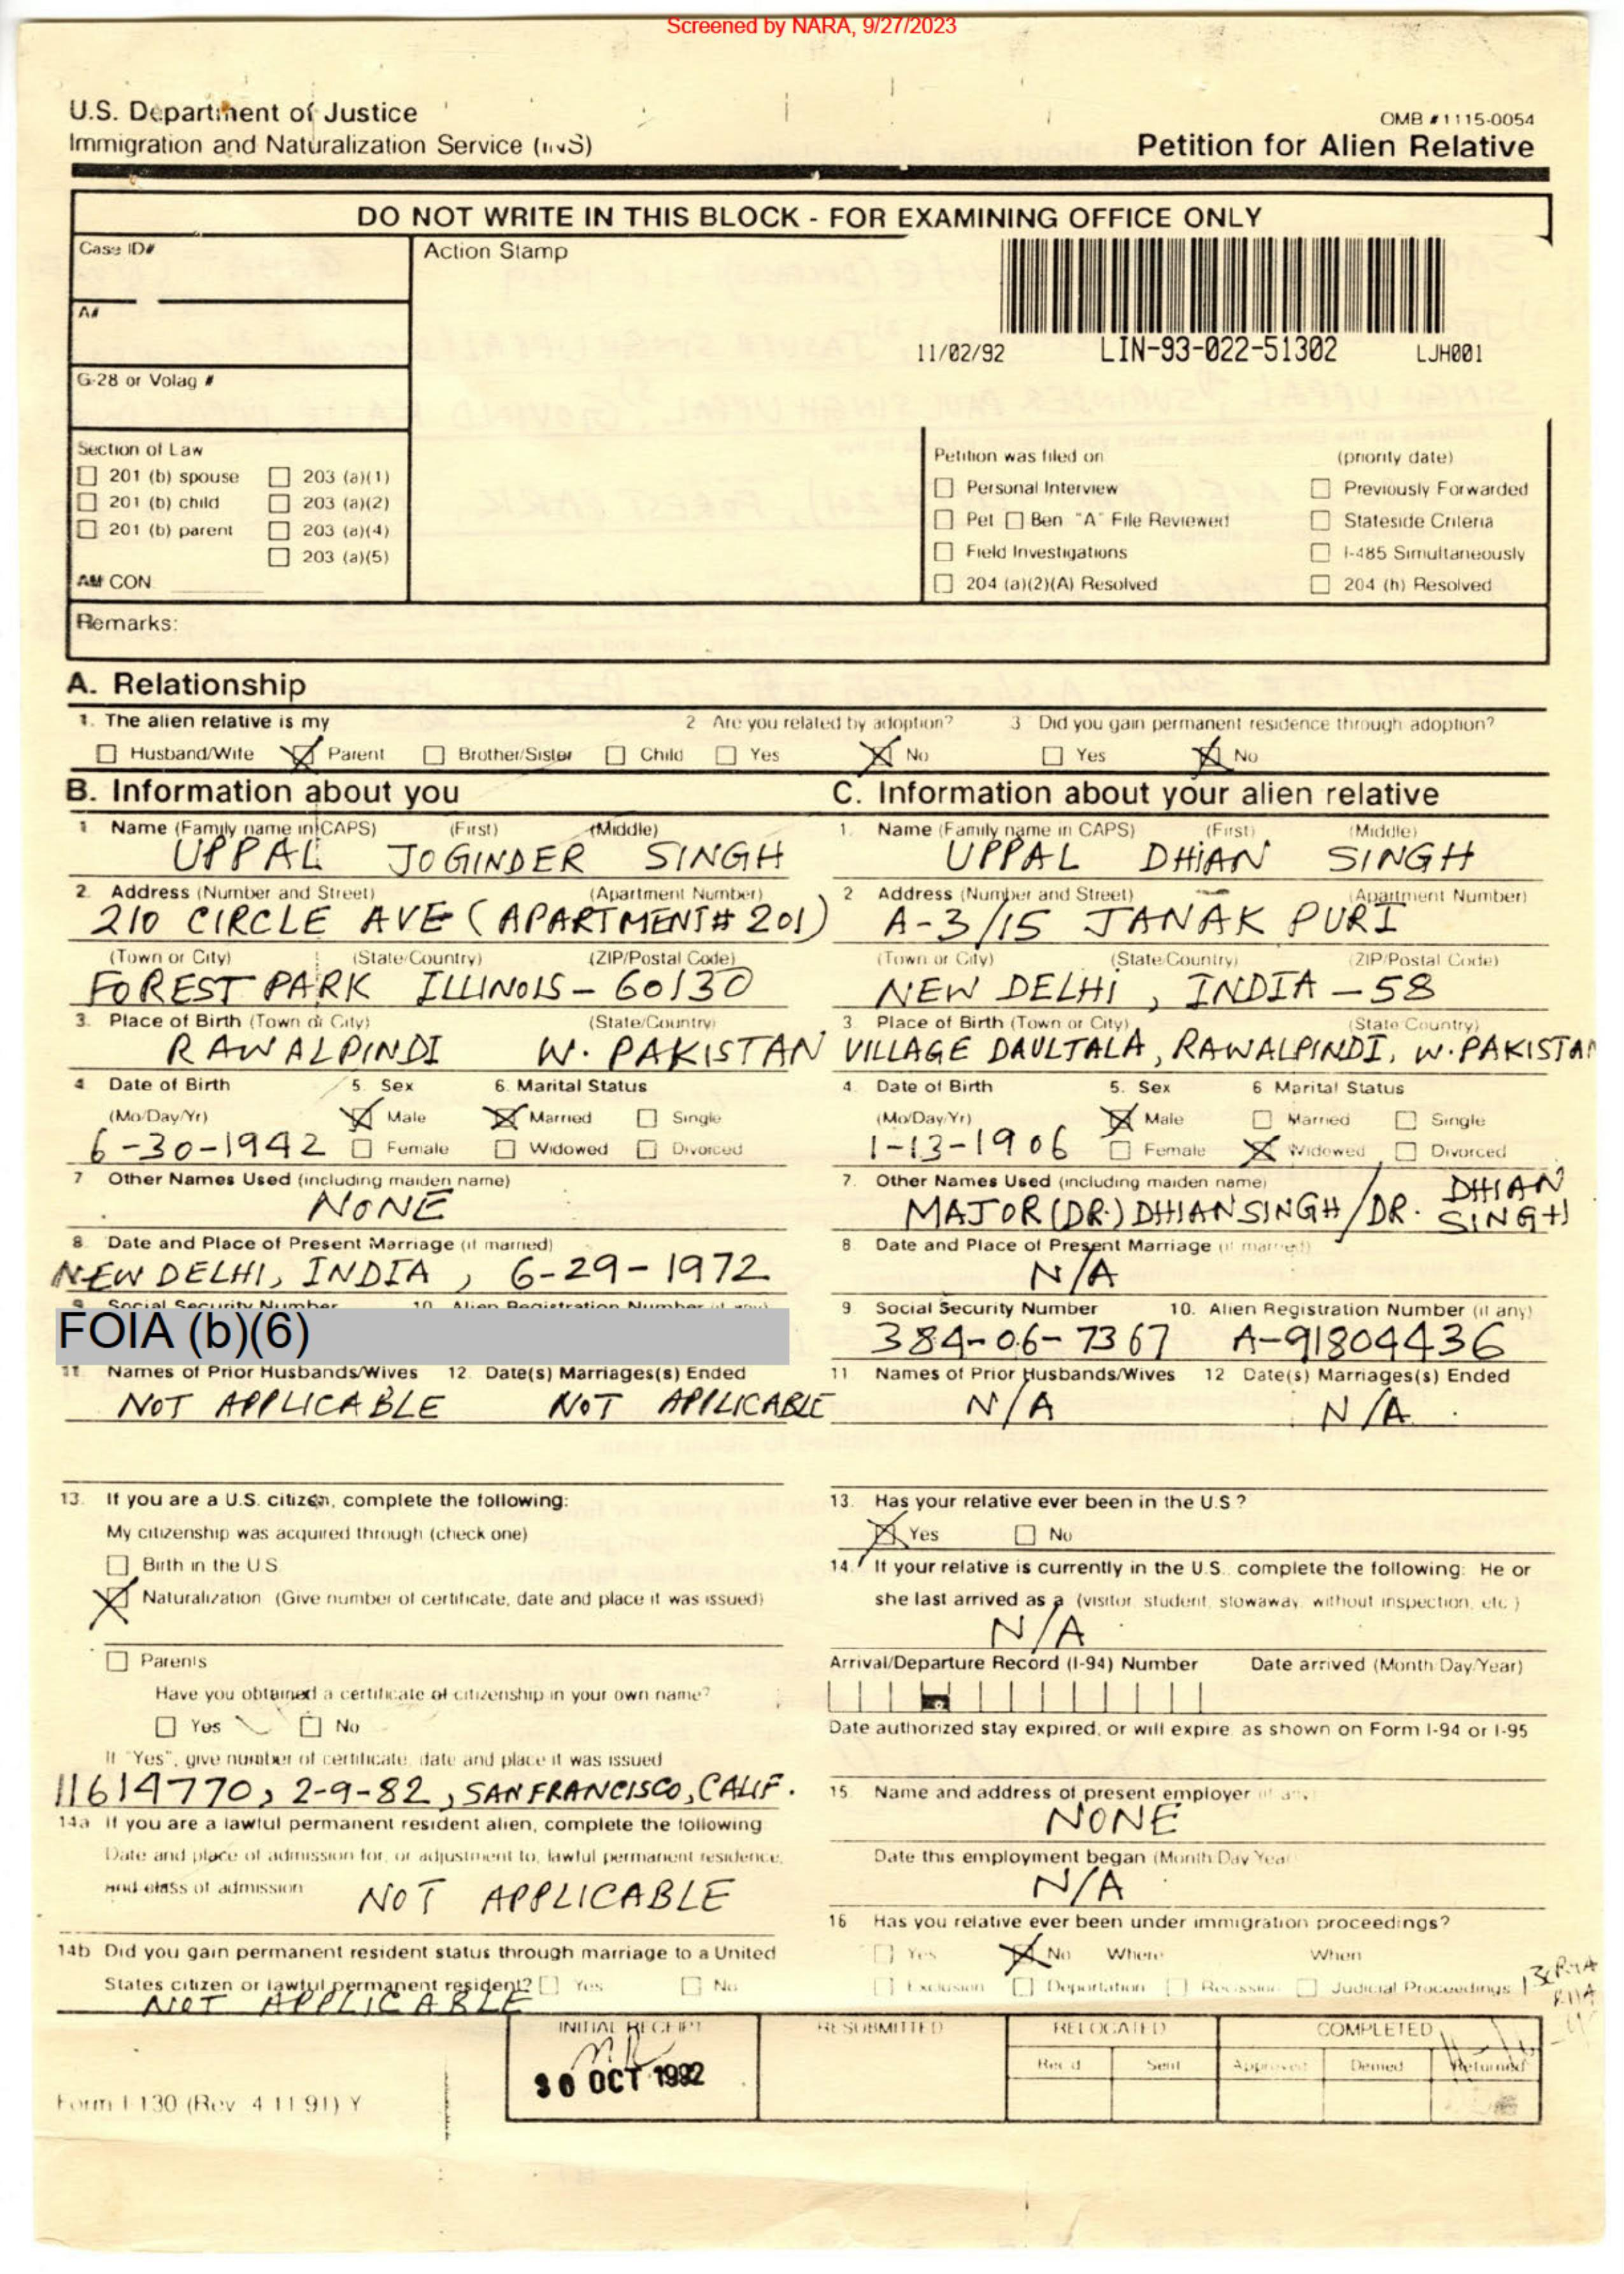 Screened by NARA, 9/27/2023
U.S. Department of Justice
Immigration and Naturalization Service (INS)
OMB #1115-0054
Petition for Alien Relative
DO NOT WRITE IN THIS BLOCK - FOR EXAMINING OFFICE ONLY
Case ID#
Action Stamp
A#
11/02/92 LIN-93-022-51302 LJH001
G-28 or Volag #
Section of Law
201 (b) spouse 203 (a)(1)
201 (b) child 203 (a)(2)
201 (b) parent 203 (a)(4)
203 (a)(5)
AM CON
Petition was filed on (priority date)
Personal Interview Previously Forwarded
Pet Ben "A" File Reviewed Stateside Criteria
Field Investigations I-485 Simultaneously
204 (a)(2)(A) Resolved 204 (h) Resolved
Remarks:
A. Relationship
1. The alien relative is my 2 Are you related by adoption? 3 Did you gain permanent residence through adoption?
Husband/Wife Parent Brother/Sister Child Yes No Yes No
B. Information about you
1 Name (Family name in CAPS) (First) (Middle)
UPPAL JOGINDER SINGH
2. Address (Number and Street) (Apartment Number)
210 CIRCLE AVE (APARTMENT# 201)
(Town or City) (State/Country) (ZIP/Postal Code)
FOREST PARK ILLINOIS - 60130
3. Place of Birth (Town or City) (State/Country)
RAWALPINDI W. PAKISTAN
4 Date of Birth 5. Sex 6. Marital Status
(Mo/Day/Yr) Male Married Single
6-30-1942 Female Widowed Divorced
7 Other Names Used (including maiden name)
NONE
8. Date and Place of Present Marriage (if married)
NEW DELHI, INDIA, 6-29-1972
9 Social Security Number 10. Alien Registration Number (if any)
FOIA (b)(6)
11 Names of Prior Husbands/Wives 12. Date(s) Marriages(s) Ended
NOT APPLICABLE NOT APPLICABLE
13. If you are a U.S. citizen, complete the following:
My citizenship was acquired through (check one)
Birth in the U.S
Naturalization (Give number of certificate, date and place it was issued)
Parents
Have you obtained a certificate of citizenship in your own name?
Yes No
If "Yes", give number of certificate, date and place it was issued
11614770, 2-9-82, SAN FRANCISCO, CALIF.
14a If you are a lawful permanent resident alien, complete the following
Date and place of admission for, or adjustment to, lawful permanent residence,
and class of admission NOT APPLICABLE
14b Did you gain permanent resident status through marriage to a United
States citizen or lawful permanent resident? Yes No
NOT APPLICABLE
C. Information about your alien relative
1. Name (Family name in CAPS) (First) (Middle)
UPPAL DHIAN SINGH
2 Address (Number and Street) (Apartment Number)
A-3/15 JANAK PURI
(Town or City) (State/Country) (ZIP/Postal Code)
NEW DELHI, INDIA - 58
3. Place of Birth (Town or City) (State/Country)
VILLAGE DAULTALA, RAWALPINDI, W. PAKISTAN
4. Date of Birth 5. Sex 6 Marital Status
(Mo/Day/Yr) Male Married Single
1-13-1906 Female Widowed Divorced
7. Other Names Used (including maiden name)
MAJOR (DR.) DHIAN SINGH / DR. DHIAN SINGH
8 Date and Place of Present Marriage (if married)
N/A
9. Social Security Number 10. Alien Registration Number (if any)
384-06-7367 A-91804436
11 Names of Prior Husbands/Wives 12 Date(s) Marriages(s) Ended
N/A N/A
13. Has your relative ever been in the U.S.?
Yes No
14. If your relative is currently in the U.S. complete the following: He or
she last arrived as a (visitor, student, stowaway, without inspection, etc.)
N/A
Arrival/Departure Record (I-94) Number Date arrived (Month/Day/Year)
Date authorized stay expired, or will expire as shown on Form I-94 or I-95
15. Name and address of present employer (if any)
NONE
Date this employment began (Month/Day/Year)
N/A
16 Has you relative ever been under immigration proceedings?
Yes No Where When
Exclusion Deportation Recission Judicial Proceedings
INITIAL RECEIPT RESUBMITTED RELOCATED COMPLETED
Rec'd Sent Approved Denied Returned
30 OCT 1992
Form I-130 (Rev. 4 11 91) Y